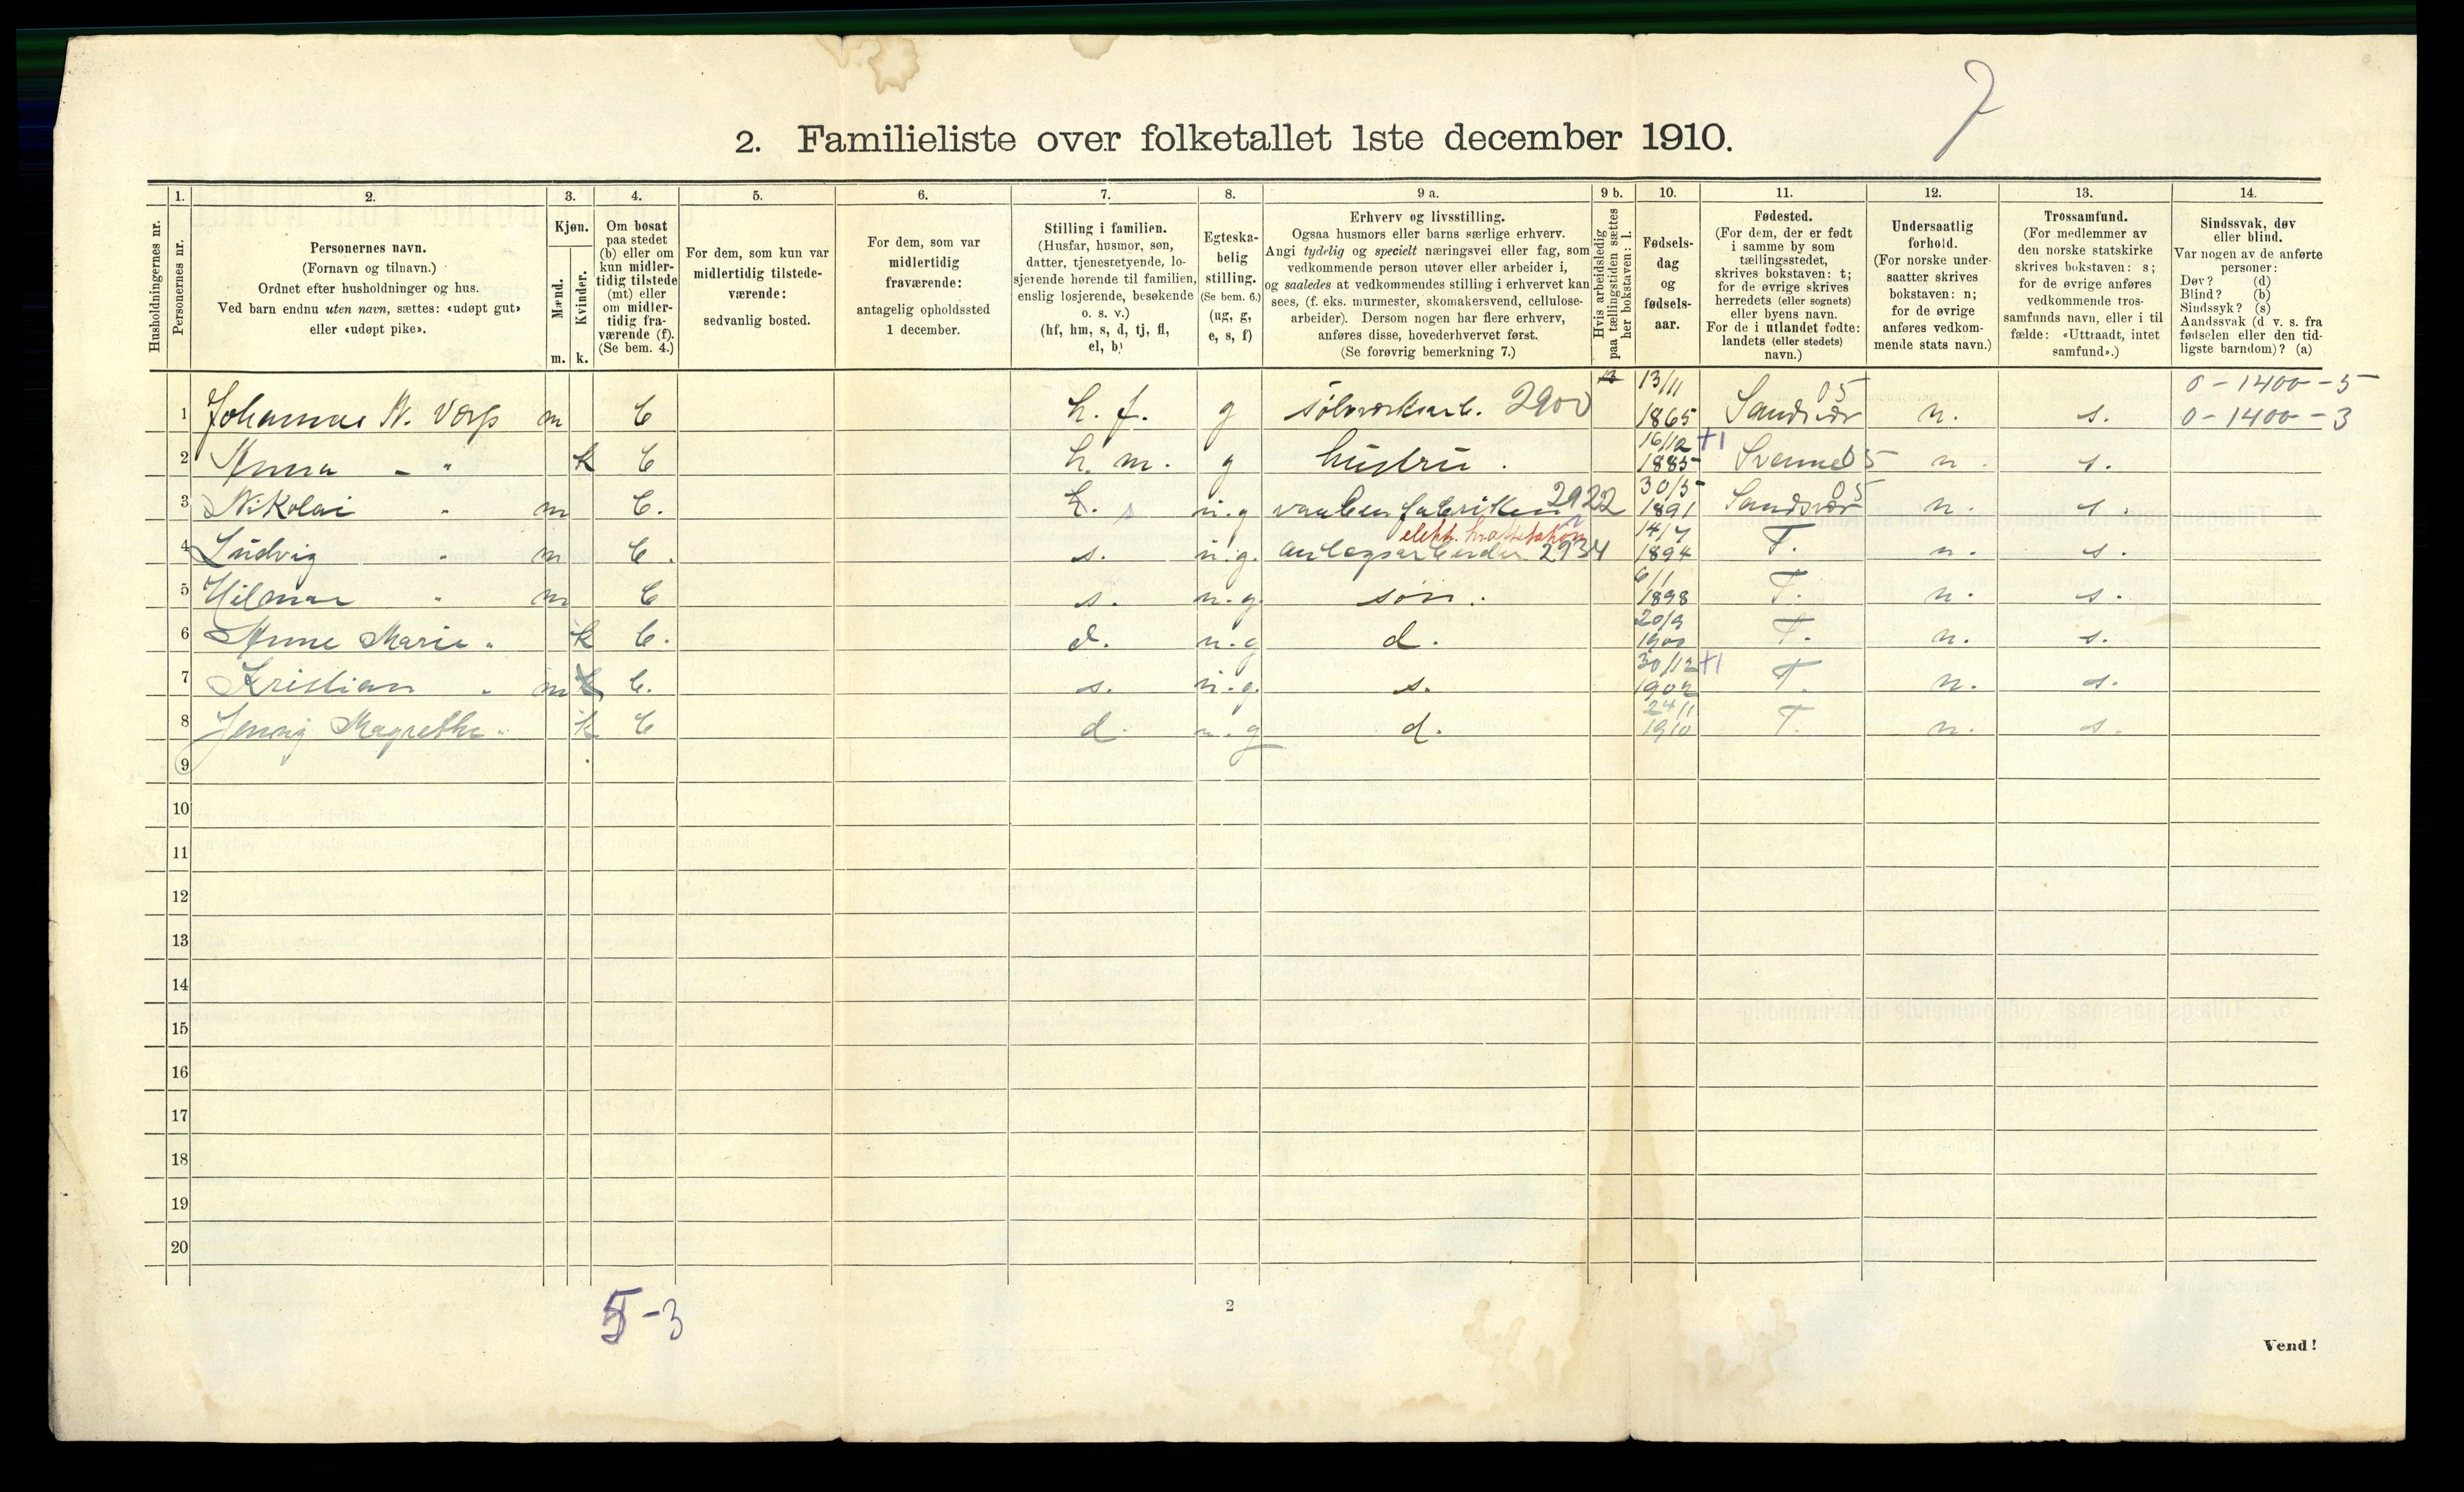 7
2. Familieliste over folketallet 1ste december 1910.
Husholdningernes nr.
1. Personernes nr.
2. Personernes navn.
(Fornavn og tilnavn.)
Ordnet efter husholdninger og hus.
Ved barn endnu uten navn, sættes: «udøpt gut»
eller «udøpt pike».
3. Kjøn.
Mænd. m.
Kvinder. k.
4. Om bosat
paa stedet
(b) eller om
kun midler-
tidig tilstede
(mt) eller
om midler-
tidig fra-
værende (f).
(Se bem. 4.)
5. For dem, som kun var
midlertidig tilstede-
værende:
sedvanlig bosted.
6. For dem, som var
midlertidig
fraværende:
antagelig opholdssted
1 december.
7. Stilling i familien.
(Husfar, husmor, søn,
datter, tjenestetyende, lo-
sjerende hørende til familien,
enslig losjerende, besøkende
o. s. v.)
(hf, hm, s, d, tj, fl,
el, b)
8. Egteska-
belig
stilling.
(Se bem. 6.)
(ug, g,
e, s, f)
9 a. Erhverv og livsstilling.
Ogsaa husmors eller barns særlige erhverv.
Angi tydelig og specielt næringsvei eller fag, som
vedkommende person utøver eller arbeider i,
og saaledes at vedkommendes stilling i erhvervet kan
sees, (f. eks. murmester, skomakersvend, cellulose-
arbeider). Dersom nogen har flere erhverv,
anføres disse, hovederhvervet først.
(Se forøvrig bemerkning 7.)
9 b. Hvis arbeidsledig
paa tællingstiden sættes
her bokstaven: l.
10. Fødsels-
dag
og
fødsels-
aar.
11. Fødested.
(For dem, der er født
i samme by som
tællingsstedet,
skrives bokstaven: t;
for de øvrige skrives
herredets (eller sognets)
eller byens navn.
For de i utlandet fødte:
landets (eller stedets)
navn.)
12. Undersaatlig
forhold.
(For norske under-
saatter skrives
bokstaven: n;
for de øvrige
anføres vedkom-
mende stats navn.)
13. Trossamfund.
(For medlemmer av
den norske statskirke
skrives bokstaven: s;
for de øvrige anføres
vedkommende tros-
samfunds navn, eller i til
fælde: «Uttraadt, intet
samfund».)
14. Sindssvak, døv
eller blind.
Var nogen av de anførte
personer:
Døv? (d)
Blind? (b)
Sindssyk? (s)
Aandssvak (d. v. s. fra
fødselen eller den tid-
ligste barndom)? (a)
0 - 1400 - 5
1 Johannes N. m b h. f. g sølvverksarb. 2900 13/11 1865 Sandsvær 05 n. s. 0 - 1400 - 3
2 Anna - " k b h. m. g hustru. 16/12 +1 1885 05 n. s.
3 Nikolai " m b. h. s u.g vaabenfabriken 2922 30/5 1891 Sandsvær 05 n. s.
elekt. kraftstation
4 Ludvig " m b. s. u.g. anlægsarbeider 2934 14/7 1894 T. n. s.
5 Hilmar " m b s. u.g. søn. 6/1 1898 T. n. s.
6 Anne Marie " k b. d. u.g d. 20/9 1900 T. n. s.
7 Kristian " m b. s. u.g. s. 30/12 +1 1902 T. n. s.
8 Jenny Magrethe " k b d. u.g d. 24/11 1910 T. n. s.
9
10
11
12
13
14
15
16
17
18
19
20
5-3
2
Vend!